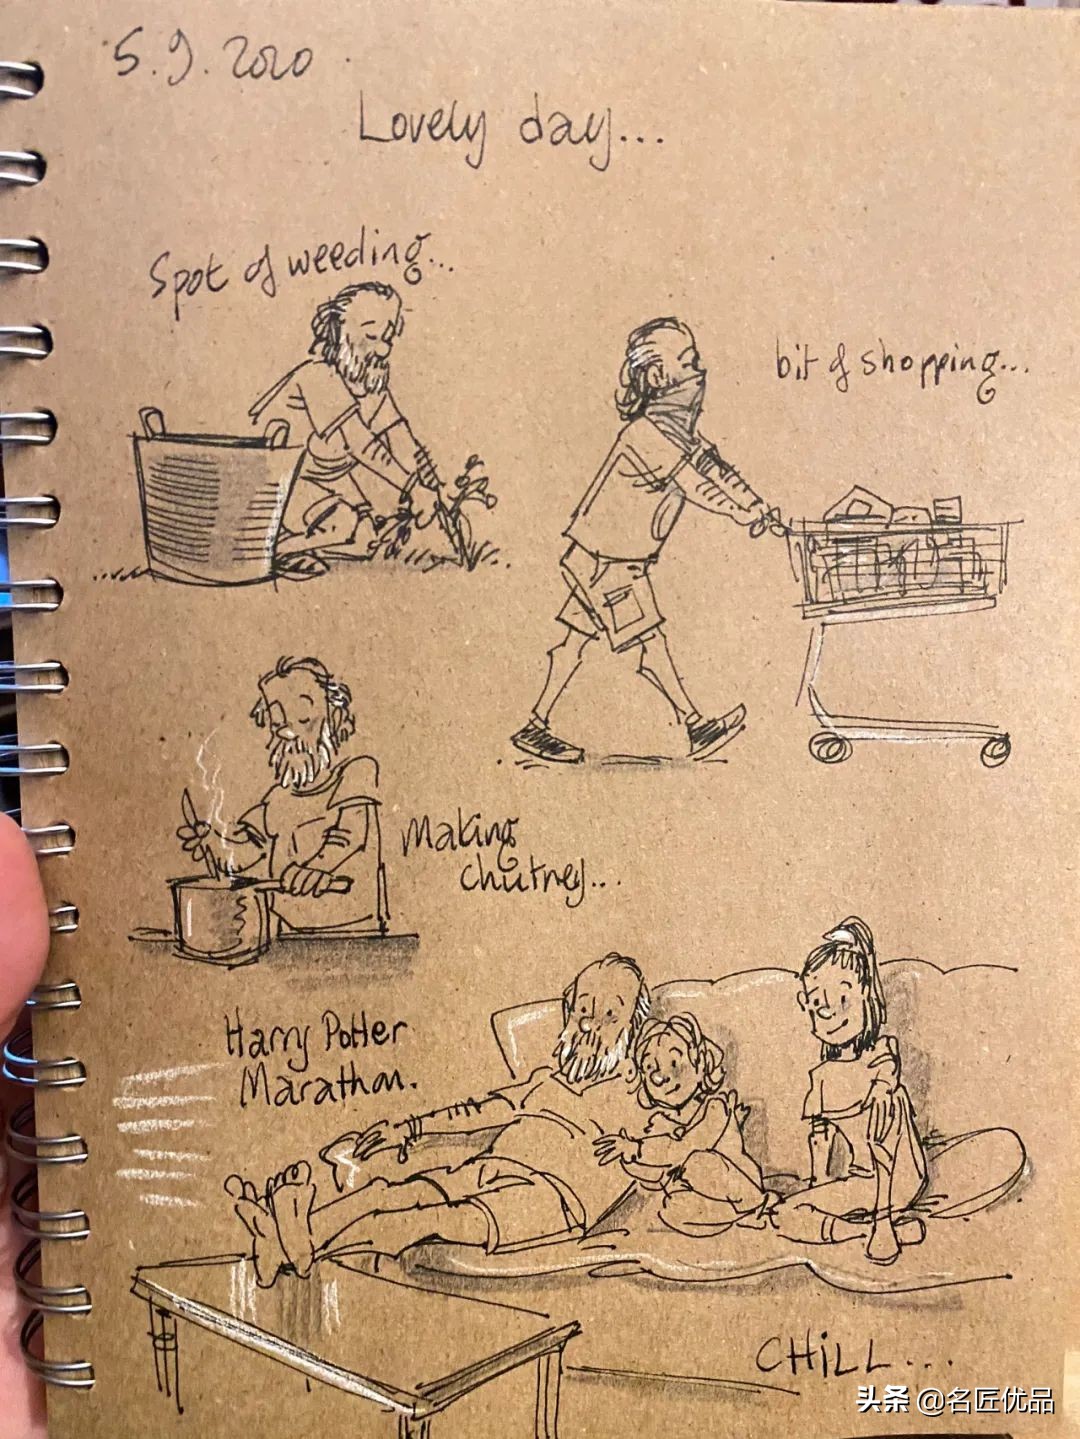 5.9.2020
Lovely day...
Spot of weeding...
bit of shopping...
Making
chutney...
Harry Potter
Marathon.
CHiLL...
头条 @名匠优品